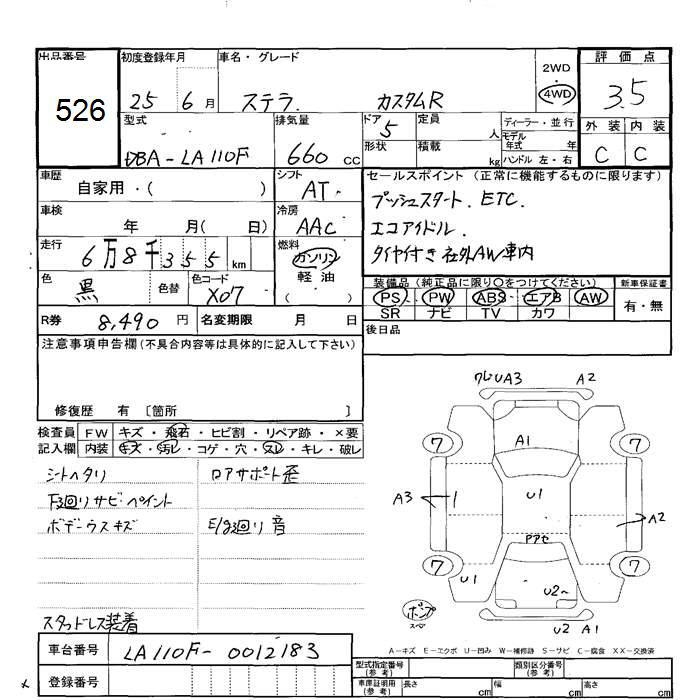 出品番号
526
初度登録年月
25 6月
車名・グレード
ステラ カスタムR
2WD
・
4WD
評価点
3.5
外装 内装
C C
型式
DBA-LA110F
排気量
660 cc
ドア
5
形状
定員
人
積載
kg
ディーラー・並行
モデル
年式 年
ハンドル 左・右
車歴
自家用・( )
シフト
AT
セールスポイント (正常に機能するものに限ります)
プッシュスタート. ETC.
エコアイドル.
タイヤ付き 社外AW車内
車検
年 月( 日)
冷房
AAC
走行
6万8千355 km
燃料
ガソリン
軽油
色
黒
色替
色コード
X07
装備品 (純正品に限り〇をつけてください)
PS PW ABS エアB AW
SR ナビ TV カワ
新車保証書
有・無
R券 8,490 円
名変期限 月 日
後日品
注意事項申告欄 (不具合内容等は具体的に記入して下さい)
修復歴 有 〔箇所 〕
検査員
記入欄
FW キズ・飛石・ヒビ割・リペア跡・×要
内装 キズ・汚レ・コゲ・穴・スレ・キレ・破レ
シートヘタリ
F3回りサビ・ペイント
ボデーウスキズ
スタッドレス装着
ロアサポート歪
E/g3回り音
ワレUA3 A2
A1
7 7
A3 U1 A2
アアセ
7 7
U1 U2~
ポンプ
スペア
U2 A1
A-キズ E-エクボ U-凹み W-補修跡 S-サビ C-腐食 XX-交換済
車台番号 LA110F-0012183
登録番号
型式指定番号
(参考)
類別区分番号
(参考)
車庫証明用
(参考)
長さ cm 幅 cm 高さ cm